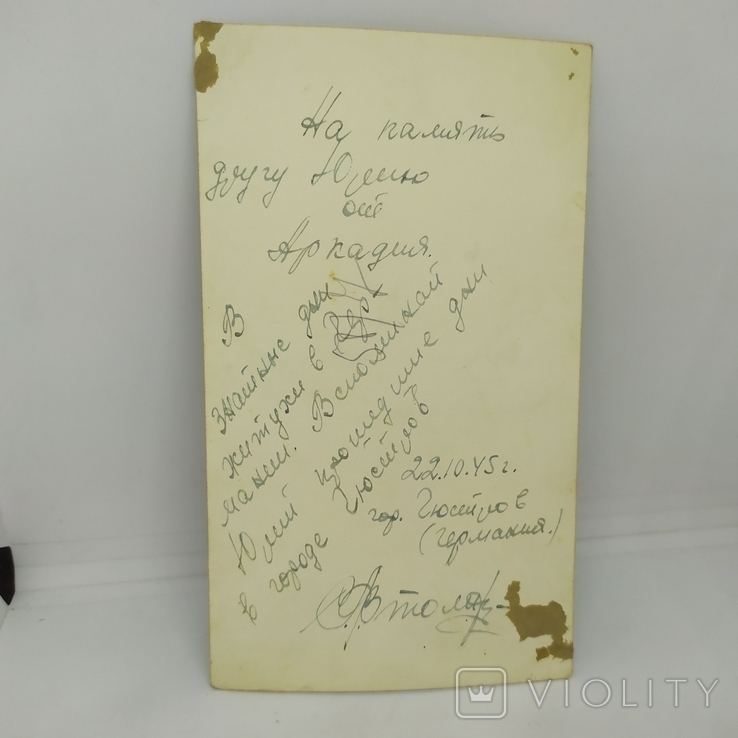 На память
другу Юлию
от
Аркадия.
В
знатные дни
житухи в Гер
мании. Вспоминай
Юлий прошедшие дни
в городе Гюстров
22.10.45г.
гор. Гюстров
(Германия.)
VIOLITY